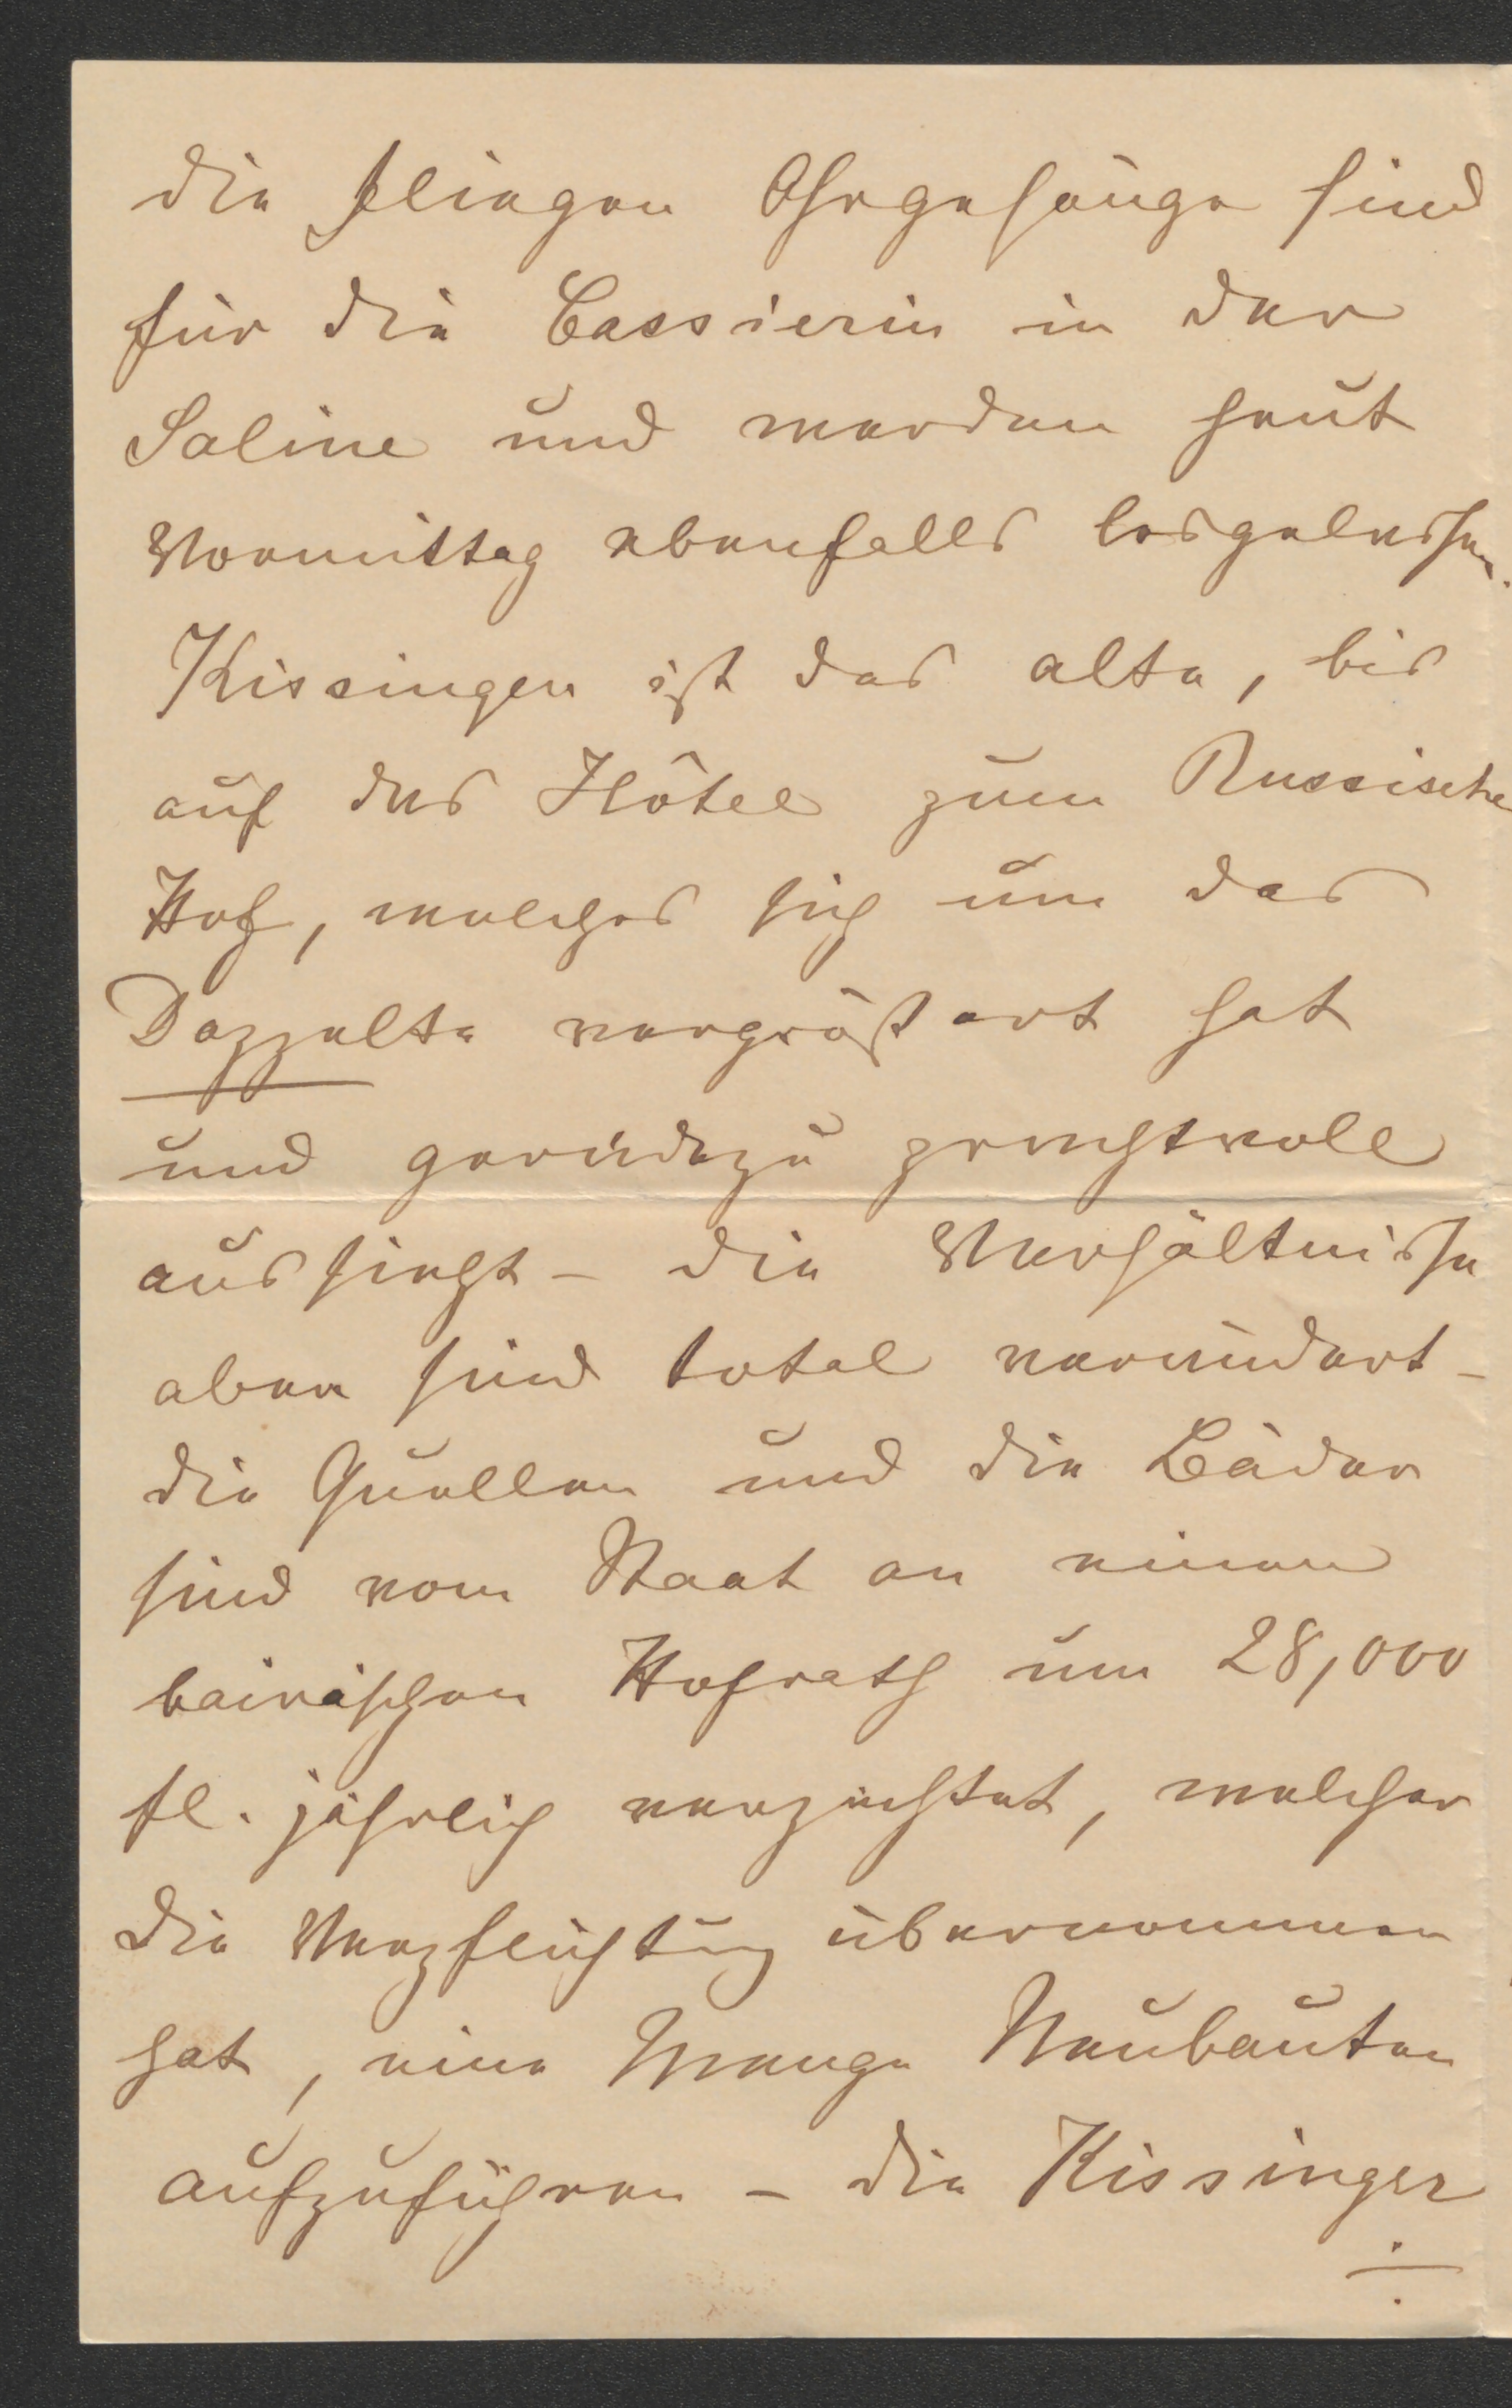 die Fliegen Ohrgehänge sind
für die Cassierin in der
Saline und werden heut
Vormittag ebenfalls losgelassen.
Kissingen ist das alte, bis
auf das Hôtel zum Russische
Hof, welches sich um das
Doppelte vergrößert hat
und geradezu prachtvoll
aussieht – die Verhältnisse
aber sind total verändert –
die Quellen und die Bäder
sind vom Staat an einen
bairischen Hofrath um 28,000
fl. jährlich verpachtet, welcher
die Verpflichtung übernommen
hat, eine Menge Neubauten
aufzuführen – die Kissinger